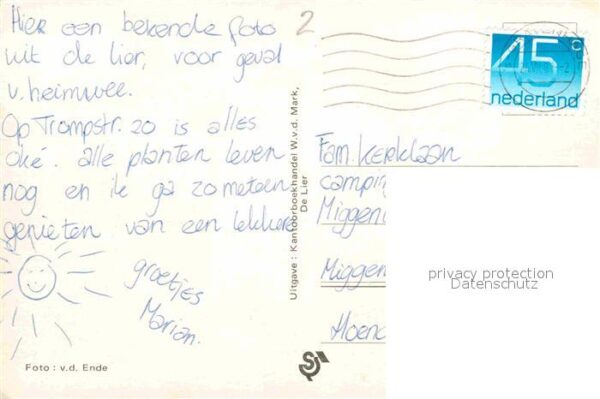 Hier een bekende foto
uit de lier, voor geval
v. heimwee.
Op Trompstr. 20 is alles
oké. alle planten leven
nog en ik ga zometeen
genieten van een lekkere
groetjes
Marian.
Foto : v.d. Ende
2
Uitgave : Kantoorboekhandel W.v.d. Mark,
De Lier
45c
nederland
Fam. Kerklaan
campin
Miggen
Miggen
Hoend
privacy protection
Datenschutz